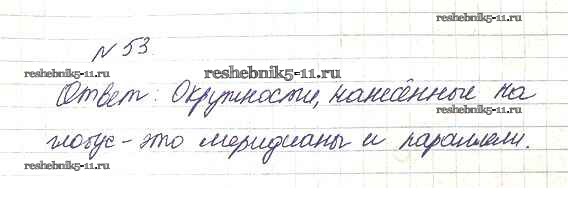 reshebnik5-11.ru
N 53.
reshebnik5-11.ru reshebnik5-11.ru
Ответ: Окружности, нанесённые на
reshebnik5-11.ru reshebnik5-11.ru
глобус - это меридианы и параллели.
reshebnik5-11.ru reshebnik5-11.ru